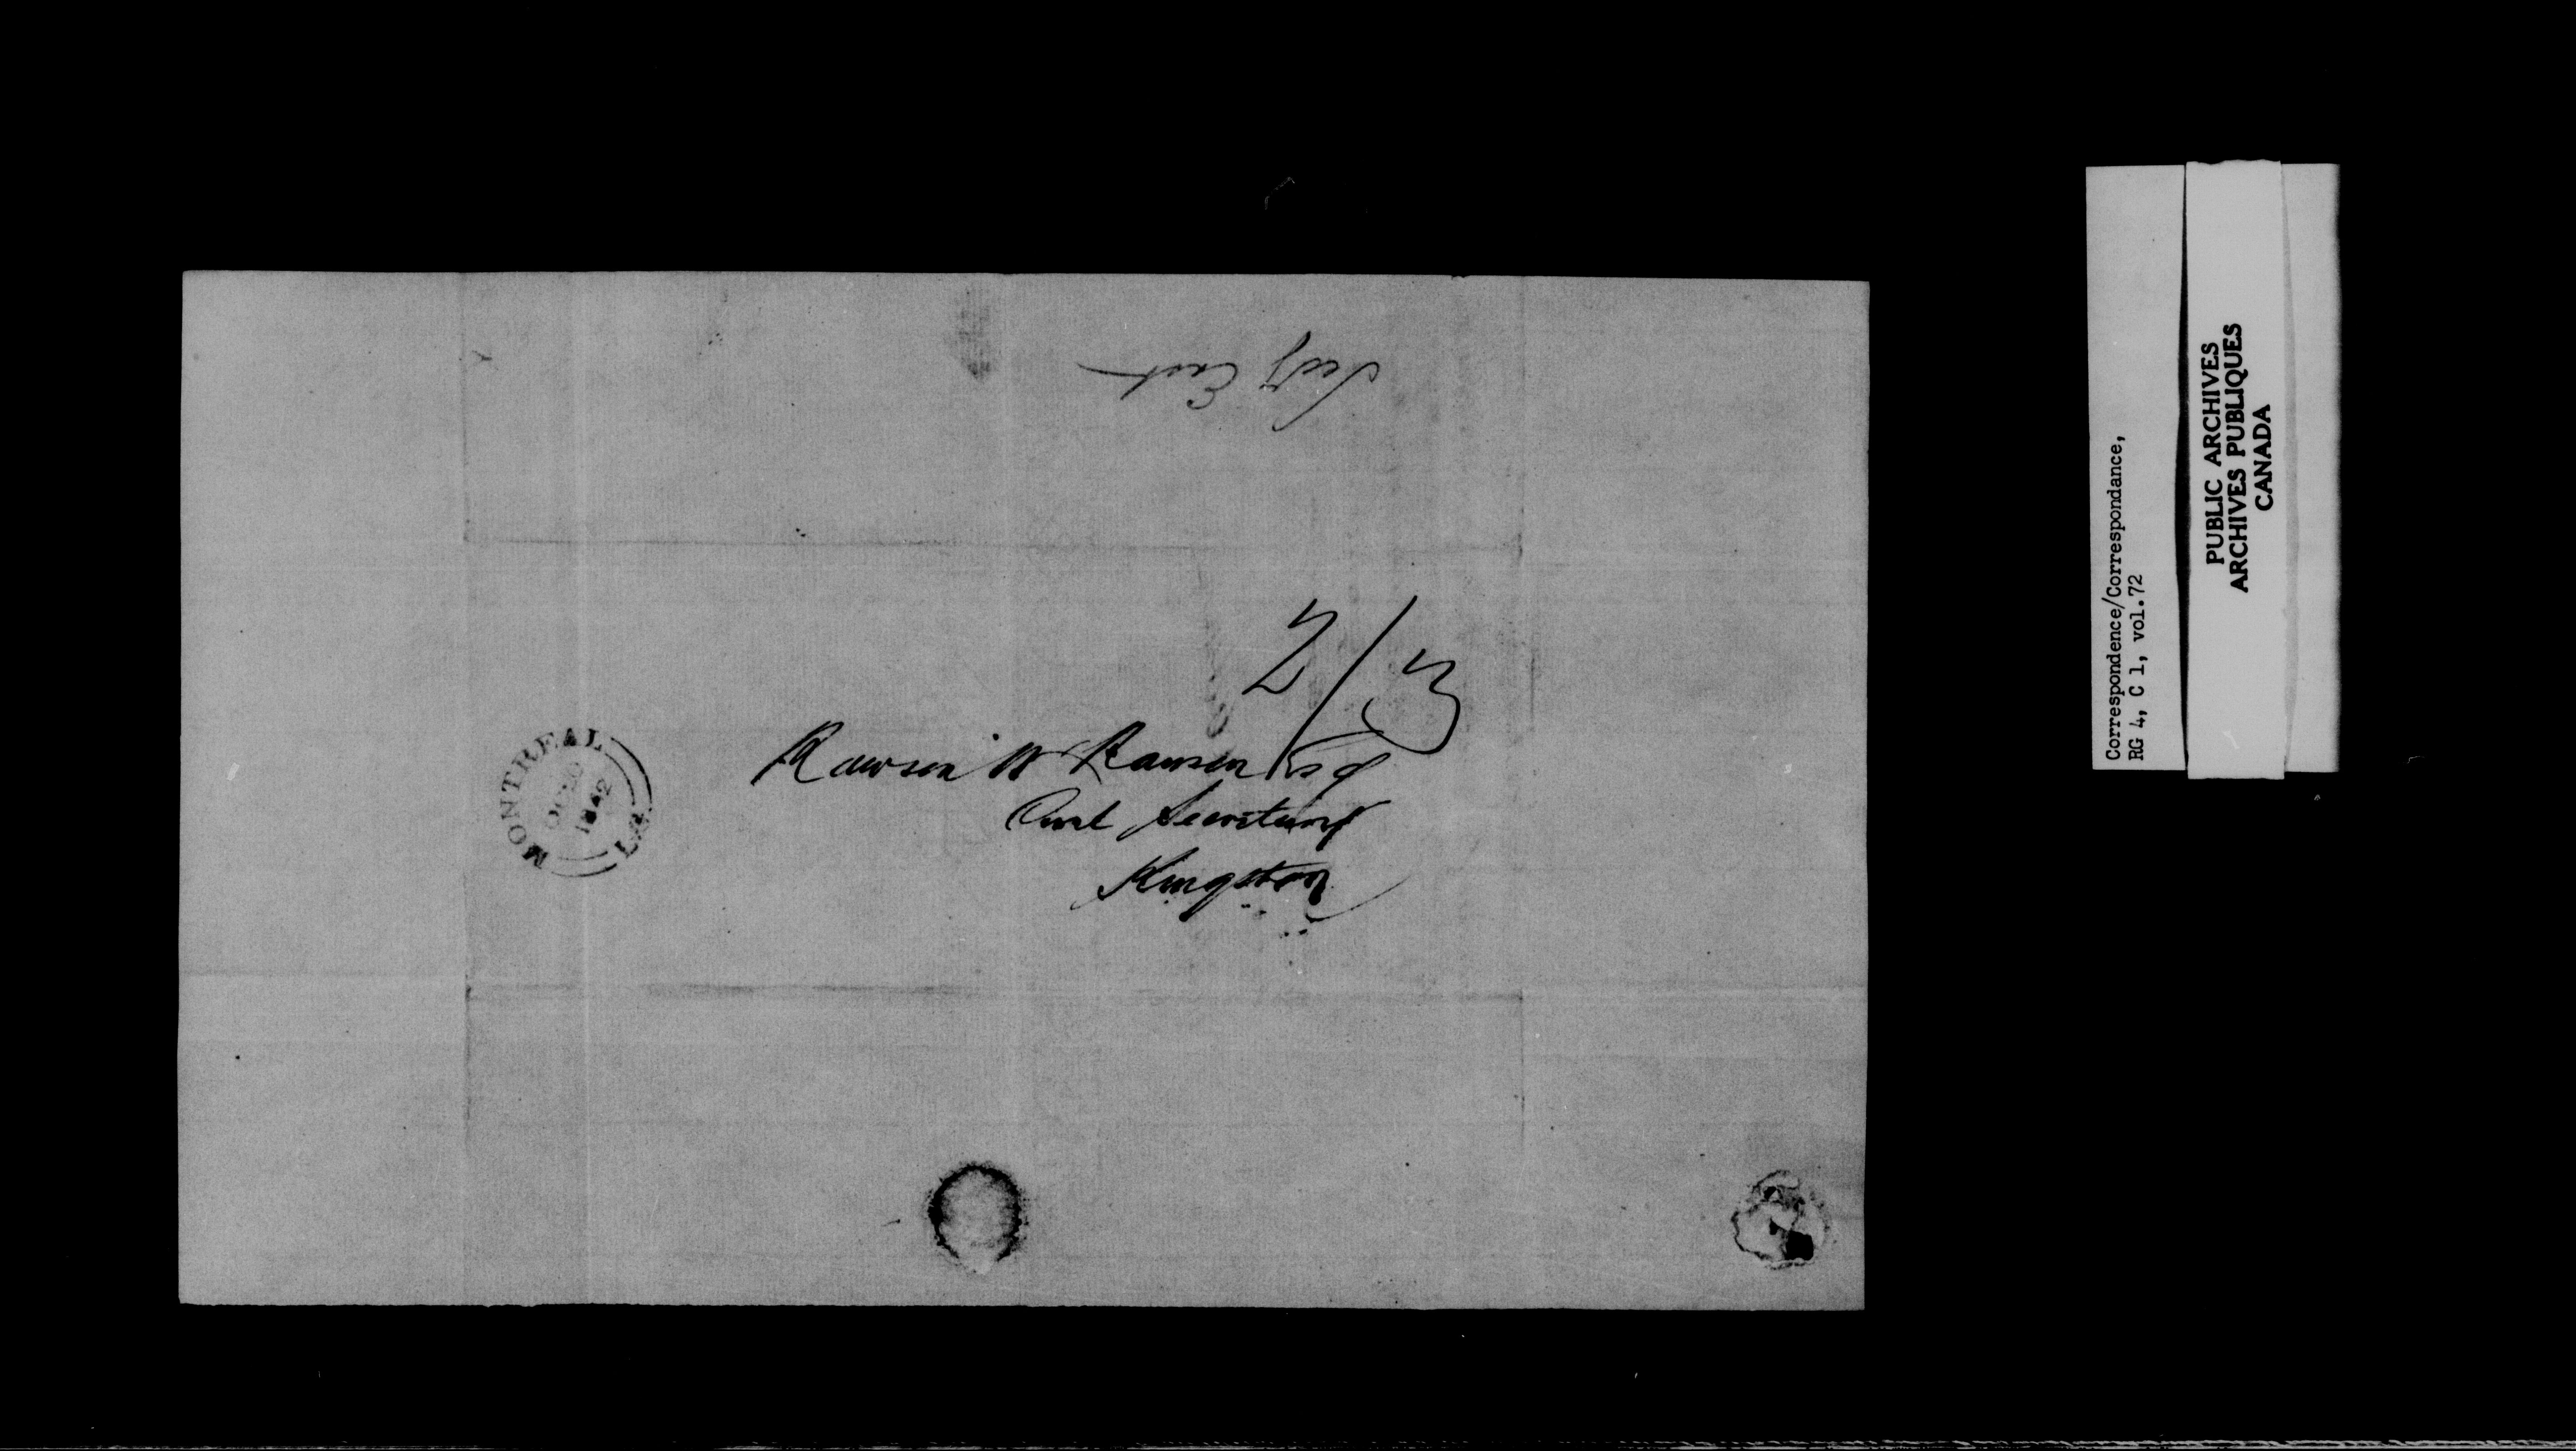 Secy East
2/3
Rawson W Rawson Esq
Civil Secretary
Kingston
MONTREAL
OC 20
1842
L.C.
Correspondence/Correspondance,
RG 4, C 1, vol.72
PUBLIC ARCHIVES
ARCHIVES PUBLIQUES
CANADA